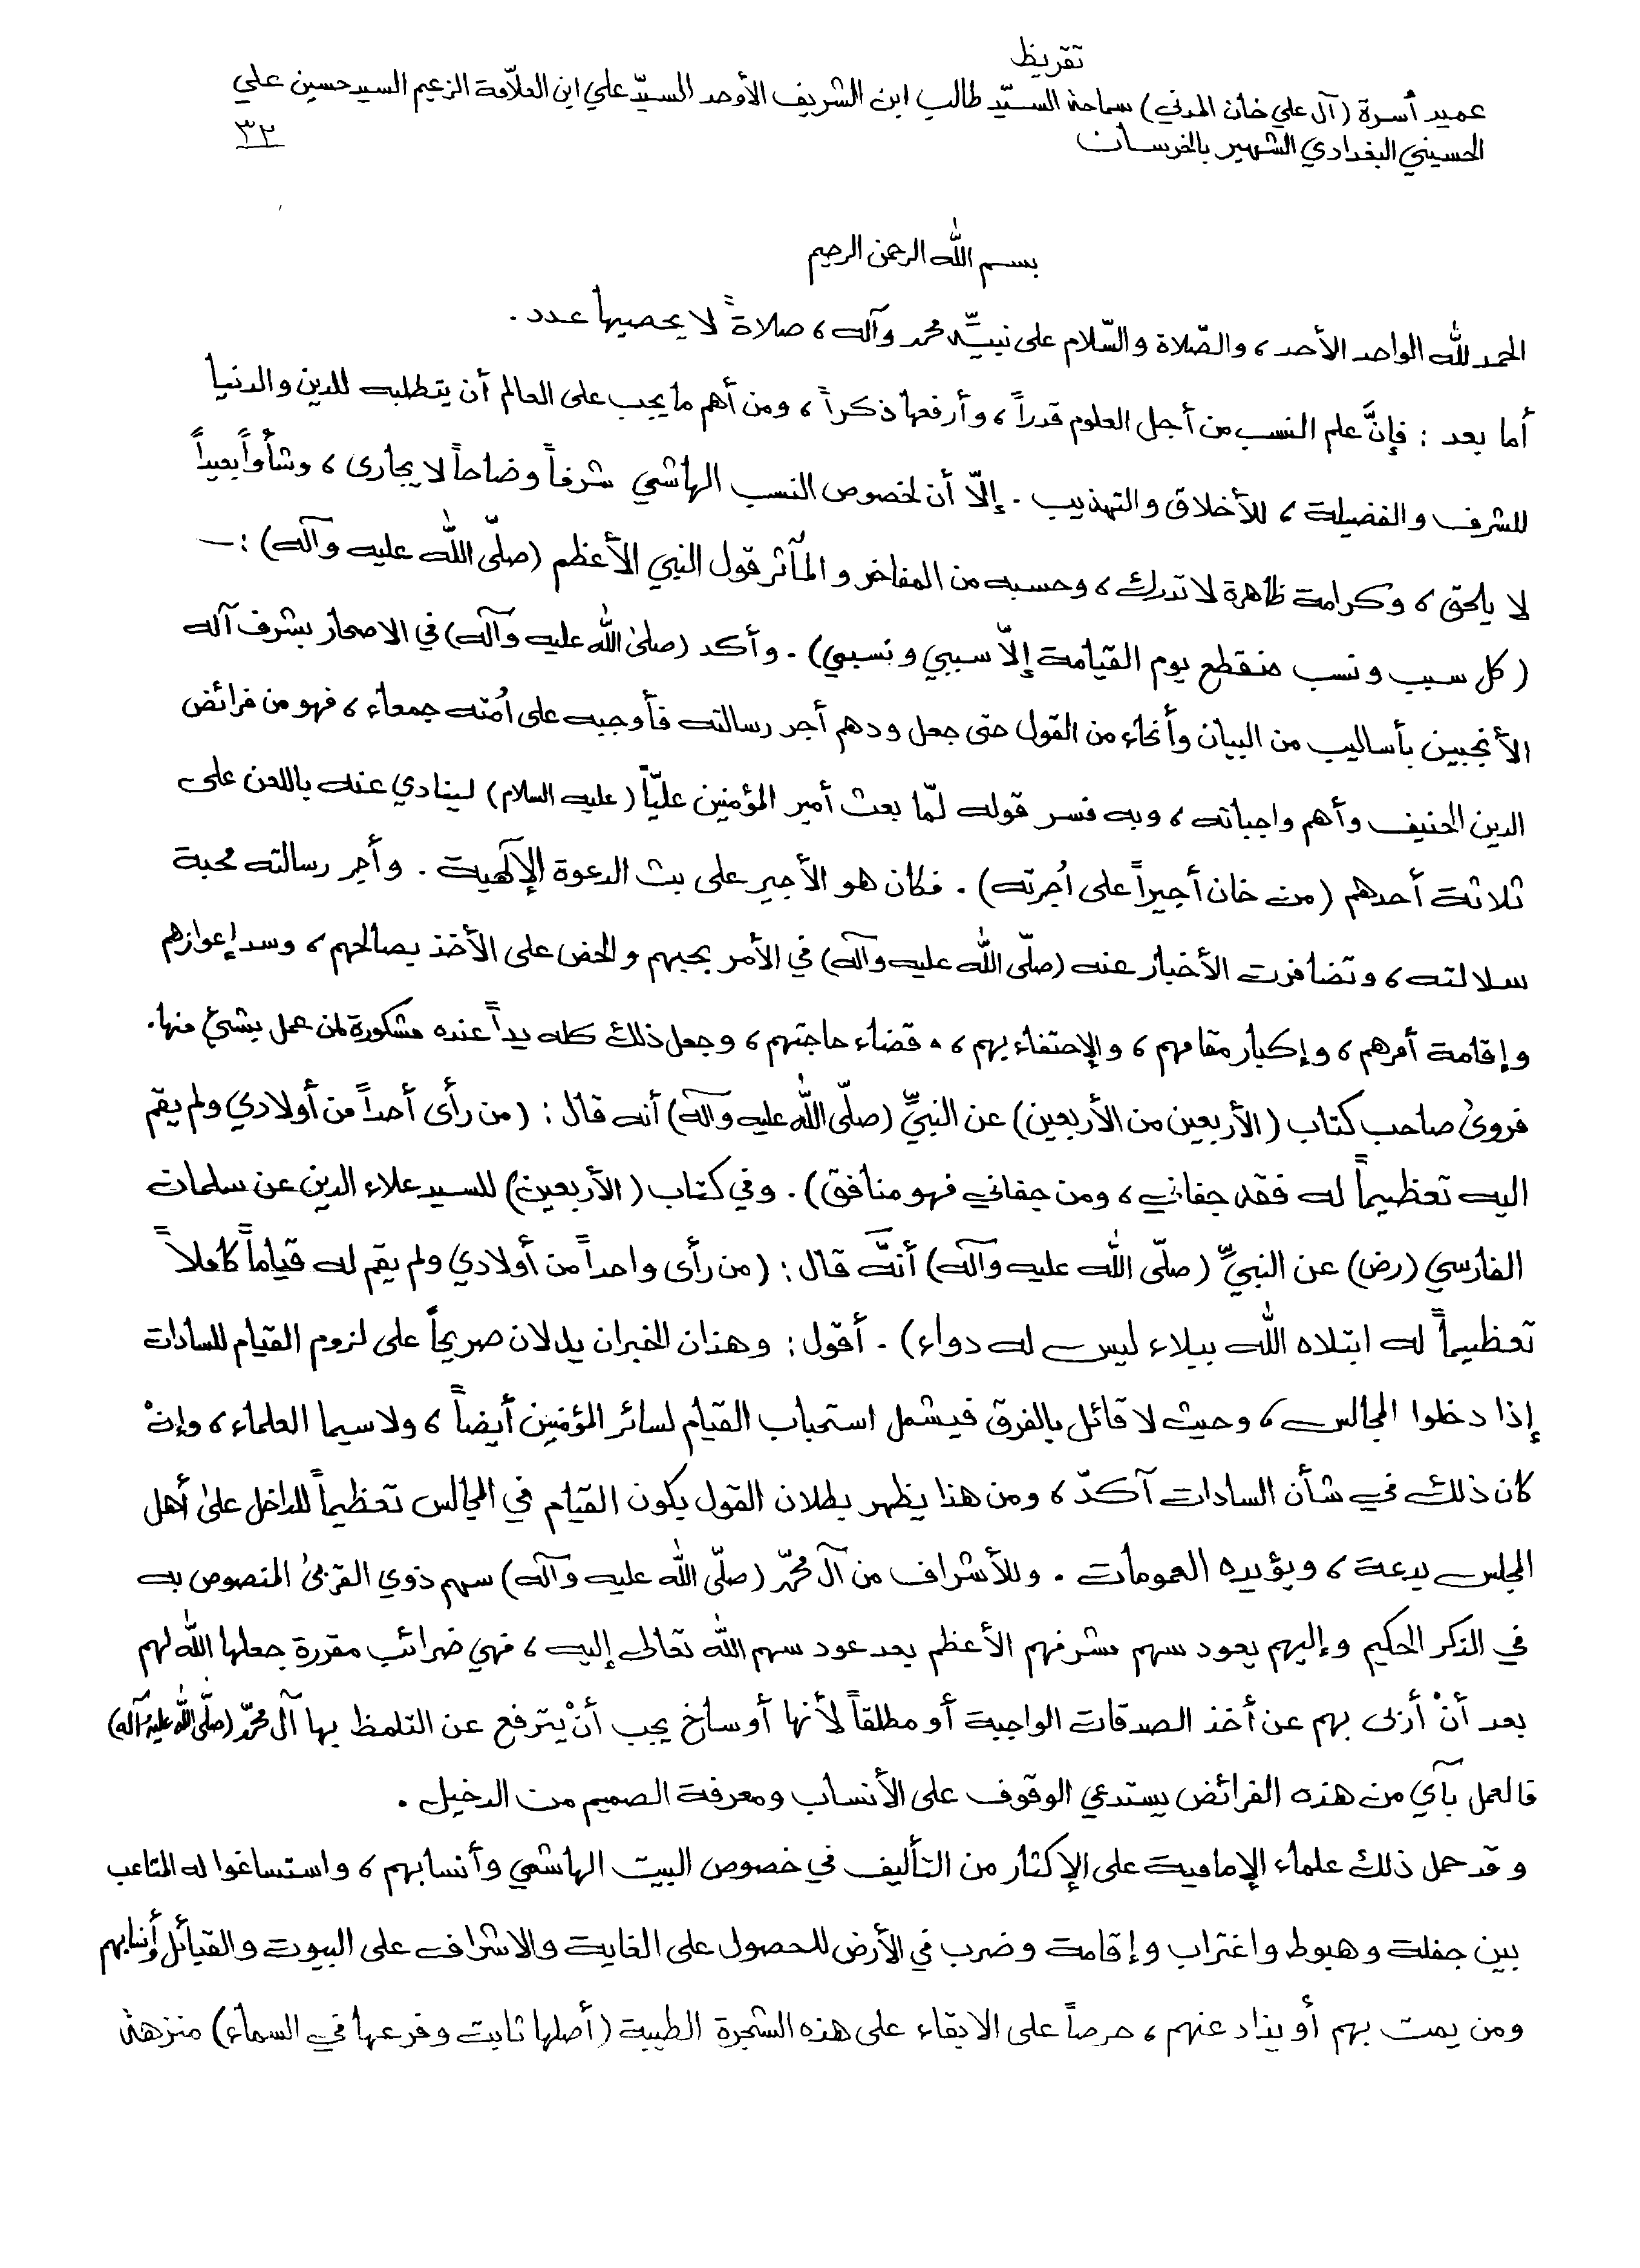 تقريظ
عميد أُسرة (آل علي خان المدني) سماحة السيّد طالب ابن الشريف الأوحد السيّد علي ابن العلّامة الزعيم السيد حسين علي
الحسيني البغدادي الشهير بالخرسان
٣٢
بسم الله الرحمن الرحيم
الحمد لله الواحد الأحد ، والصّلاة والسّلام على نبيّه محمد وآله ، صلاةً لا يحصيها عدد .
أما بعد : فإنَّ علم النسب من أجل العلوم قدراً ، وأرفعها ذكراً ، ومن أهم ما يجب على العالم أن يتطلبه للدين والدنيا
للشرف والفضيلة ، للأخلاق والتهذيب . إلّا أن لخصوص النسب الهاشمي شرفاً وضاحاً لا يجارى ، وشأواً بعيداً
لا يلحق ، وكرامة ظاهرة لا تدرك ، وحسبه من المفاخر والمآثر قول النبي الأعظم (صلّى الله عليه وآله) :ـ
(كل سبب ونسب منقطع يوم القيامة إلّا سببي ونسبي) . وأكد (صلىٰ الله عليه وآله) في الاصحار بشرف آله
الأنجبين بأساليب من البيان وأنحاء من القول حتى جعل ودهم أجر رسالته فأوجبه على اُمته جمعاء ، فهو من فرائض
الدين الحنيف وأهم واجباته ، وبه فسر قوله لمّا بعث أمير المؤمنين عليّاً (عليه السلام) لينادي عنه باللعن على
ثلاثة أحدهم (من خان أجيراً على اُجرته) . فكان هو الأجير على بث الدعوة الإلٓهية . وأجر رسالته محبة
سلالته ، وتضافرت الأخبار عنه (صلّى الله عليه وآله) في الأمر بحبهم والحض على الأخذ بصالحهم ، وسد إعوازهم
وإقامة أمرهم ، وإكبار مقامهم ، والإحتفاء بهم ، وقضاء حاجتهم ، وجعل ذلك كله يداً عنده مشكورة لمن عمل بشيئ منها .
فروىٰ صاحب كتاب (الأربعين من الأربعين) عن النبيِّ (صلّى الله عليه وآله) أنه قال : (من رأى أحداً من أولادي ولم يقم
اليه تعظيماً له فقد جفاني ، ومن جفاني فهو منافق) . وفي كتاب (الأربعين) للسيد علاء الدين عن سلمان
الفارسي (رض) عن النبيِّ (صلّى الله عليه وآله) أنَّه قال : (من رأى واحداً من أولادي ولم يقم له قياماً كاملاً
تعظيماً له ابتلاه الله ببلاء ليس له دواء) . أقول : وهذان الخبران يدلان صريحاً على لزوم القيام للسادات
إذا دخلوا المجالس ، وحيث لا قائل بالفرق فيشمل استحباب القيام لسائر المؤمنين أيضاً ، ولا سيما العلماء ، وإنْ
كان ذلك في شأن السادات آكدّ ، ومن هذا يظهر بطلان القول بكون القيام في المجالس تعظيماً للداخل علىٰ أهل
المجلس بدعة ، ويؤيده العمومات . وللأشراف من آل محمّد (صلّى الله عليه وآله) سهم ذوي القربىٰ المنصوص به
في الذكر الحكيم وإليهم يعود سهم مشرفهم الأعظم بعد عود سهم الله تعالى إليه ، فهي ضرائب مقررة جعلها الله لهم
بعد أنْ أربى بهم عن أخذ الصدقات الواجبة أو مطلقاً لأنها أوساخ يجب أنْ يترفع عن التلمظ بها آل محمّد (صلّى الله عليه وآله)
فالعمل بآي من هذه الفرائض يستدعي الوقوف على الأنساب ومعرفة الصميم من الدخيل .
وقد حمل ذلك علماء الإمامية على الإكثار من التأليف في خصوص البيت الهاشمي وأنسابهم ، واستساغوا له المتاعب
بين جفلة وهبوط واغتراب وإقامة وضرب في الأرض للحصول على الغاية والاشراف على البيوت والقبائل وأنسابهم
ومن يمت بهم أو يذاد عنهم ، حرصاً على الابقاء على هذه الشجرة الطيبة (أصلها ثابت وفرعها في السماء) منزهة